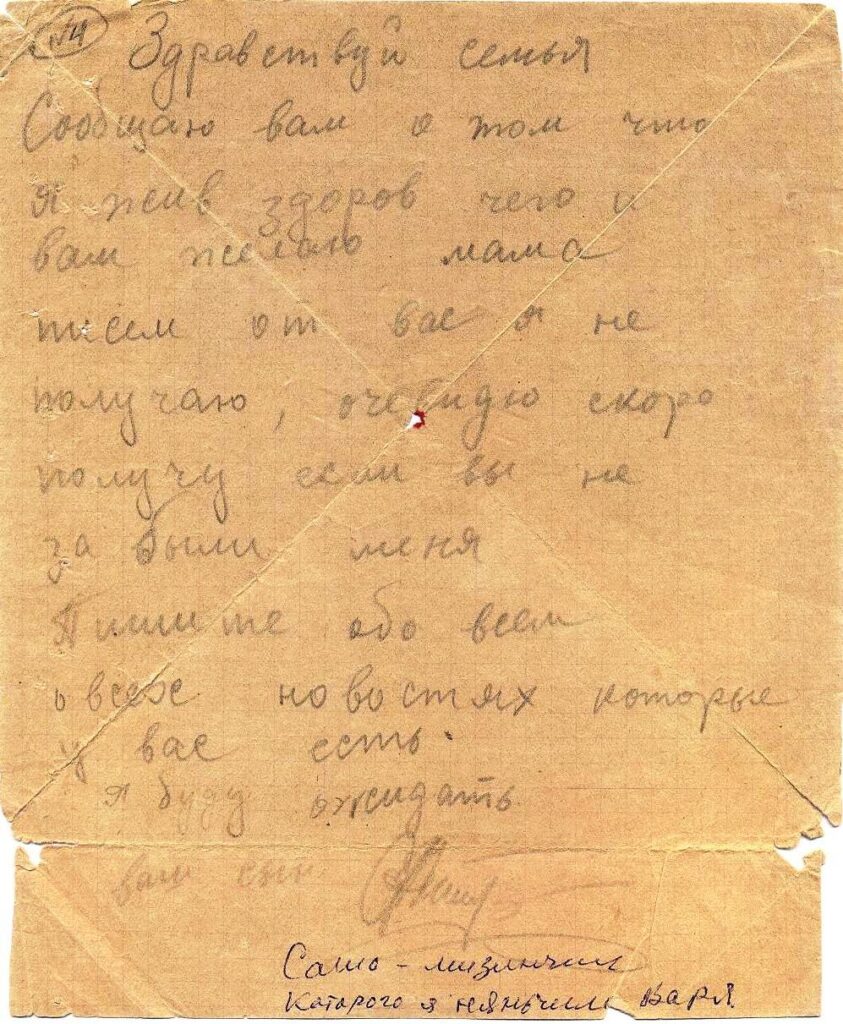 №4
Здравствуй семья
Сообщаю вам о том что
я жив здоров чего и
вам желаю мама
писем от вас я не
получаю, очевидю скоро
получу если вы не
за были меня
Пишите обо всем
о всех новостях которые
у вас есть.
я буду ожидать
ваш сын
Саша - мизинчик
Которого я няньчила Варя